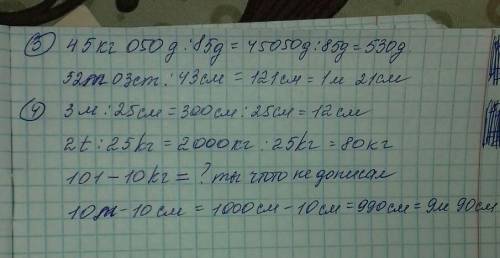 ③ 45кг 050g : 85g = 45050g : 85g = 530g
52m 03см : 43см = 121см = 1м 21см
④ 3м : 25см = 300см : 25см = 12см
2t : 25kg = 2000кг : 25kг = 80кг
101 - 10kг = ? ты что то не дописал
10m - 10см = 1000см - 10см = 990см = 9м 90см